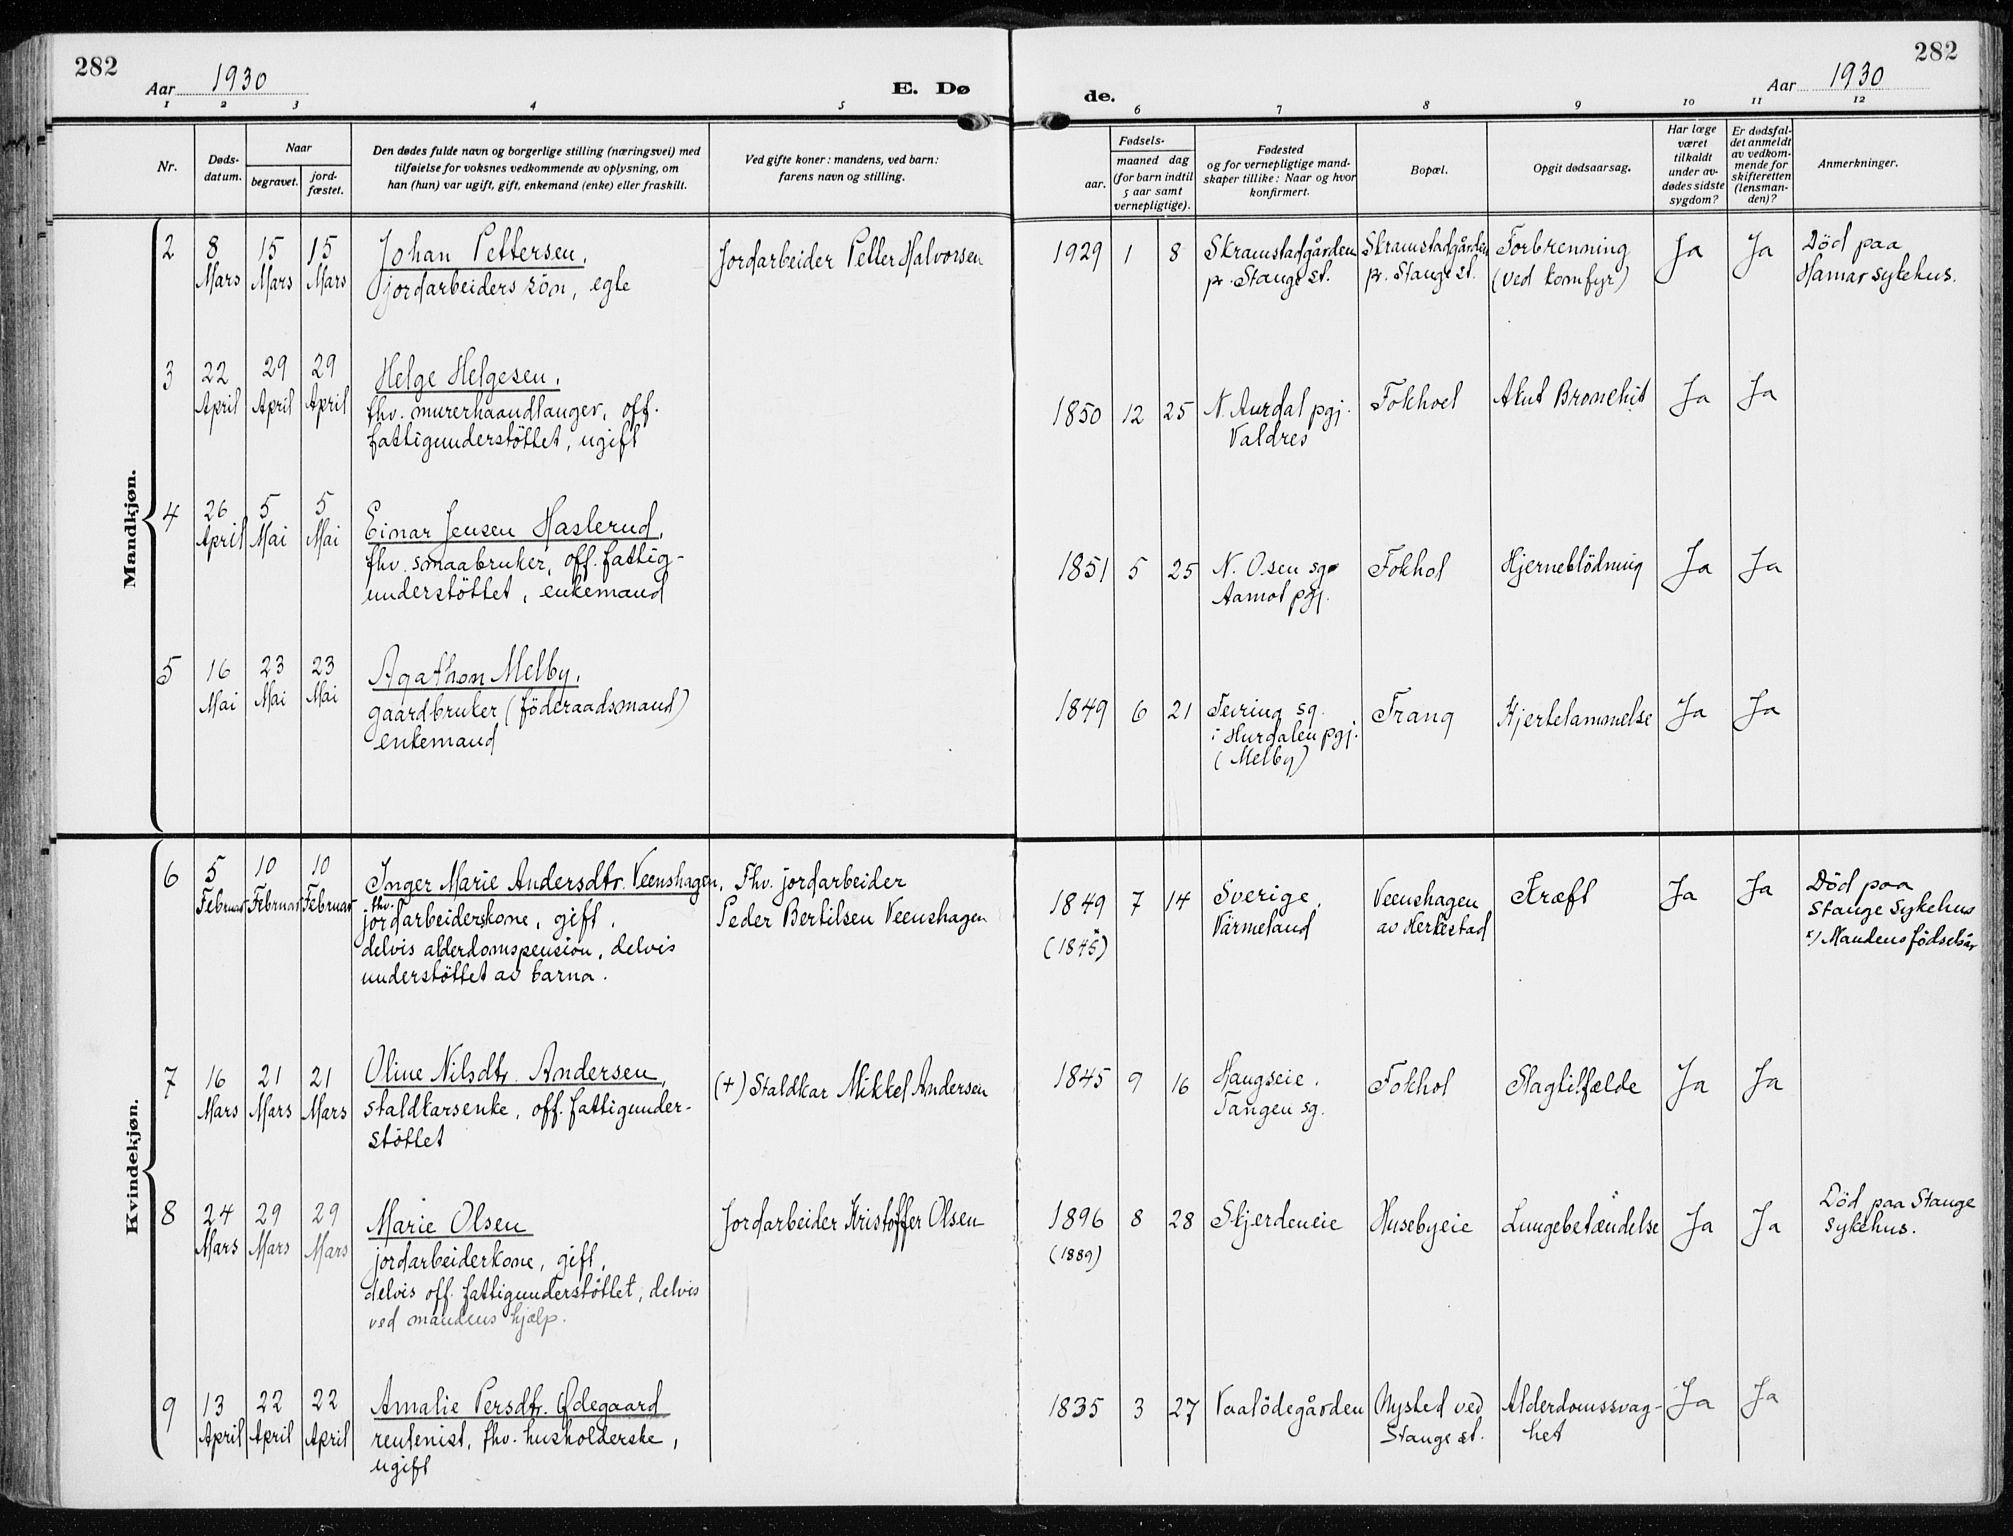 282
Aar 1930
E. Dø
de.
Aar 1930
282
1 2 3 4 5 6 7 8 9 10 11 12
Nr.
Døds-
datum.
Naar
begravet.
jord-
fæstet.
Den dødes fulde navn og borgerlige stilling (næringsvei) med
tilføielse for voksnes vedkommende av oplysning, om
han (hun) var ugift, gift, enkemand (enke) eller fraskilt.
Ved gifte koner: mandens, ved barn:
farens navn og stilling.
Fødsels-
aar.
maaned dag
(for barn indtil
5 aar samt
vernepligtige).
Fødested
og for vernepligtige mand-
skaper tillike: Naar og hvor
konfirmert.
Bopæl.
Opgit dødsaarsag.
Har læge
været
tilkaldt
under av-
dødes sidste
sygdom?
Er dødsfal-
det anmeldt
av vedkom-
mende for
skifteretten
(lensman-
den)?
Anmerkninger.
Mandkjøn.
2
8
Mars
15
Mars
15
Mars
Johan Pettersen,
jordarbeiders søn, egte
Jordarbeider Petter Halvorsen
1929 1 8
Skramstadgården
pr. Stange st.
Skramstadgården
pr. Stange st.
Forbrenning
(ved komfyr)
Ja
Ja
Död paa
Hamar sykehus.
3
22
April
29
April
29
April
Helge Helgesen,
fhv. murerhaandlanger, off.
fattigunderstöttet, ugift
1850 12 25
N. Aurdal pgj.
Valdres
Fokhol
Akut Bronchit
Ja
Ja
4
26
April
5
Mai
5
Mai
Einar Jensen Haslerud,
fhv. smaabruker, off. fattig-
understöttet, enkemand
1851 5 25
N. Osen sg.
Aamot pgj.
Fokhol
Hjerneblödning
Ja
Ja
5
16
Mai
23
Mai
23
Mai
Agathon Melby,
gaardbruker (föderaadsmand)
enkemand
1849 6 21
Feiring sg.
i Hurdalen pgj.
(Melby)
Frang
Hjertelammelse
Ja
Ja
Kvindekjøn.
6
5
Februar
10
Februar
10
Februar
Inger Marie Andersdtr. Veenshagen,
fhv.
jordarbeiderskone, gift,
delvis alderdomspension, delvis
understöttet av barna.
Fhv. jordarbeider
Peder Bertilsen Veenshagen
1849 7 14
(1845 x)
Sverige,
Värmeland
Veenshagen
av Herkestad
Kræft
Ja
Ja
Död paa
Stange Sykehus
x) Mandens fødselsår
7
16
Mars
21
Mars
21
Mars
Oline Nilsdtr. Andersen,
staldkarsenke, off. fattigunder-
stöttet
(+) Staldkar Mikkel Andersen
1845 9 16
Haugseie,
Tangen sg.
Fokhol
Slagtilfælde
Ja
Ja
8
24
Mars
29
Mars
29
Mars
Marie Olsen
jordarbeiderkone, gift,
delvis off. fattigunderstöttet, delvis
ved mandens hjælp.
Jordarbeider Kristoffer Olsen
1896 8 28
(1889)
Skjerdeneie
Husebyeie
Lungebetændelse
Ja
Ja
Död paa Stange
Sykehus.
9
13
April
22
April
22
April
Amalie Persdtr. Ødegaard
rentenist, fhv. husholderske,
ugift
1835 3 27
Vaalödegården
Nysted ved
Stange st.
Alderdomssvag-
het
Ja
Ja